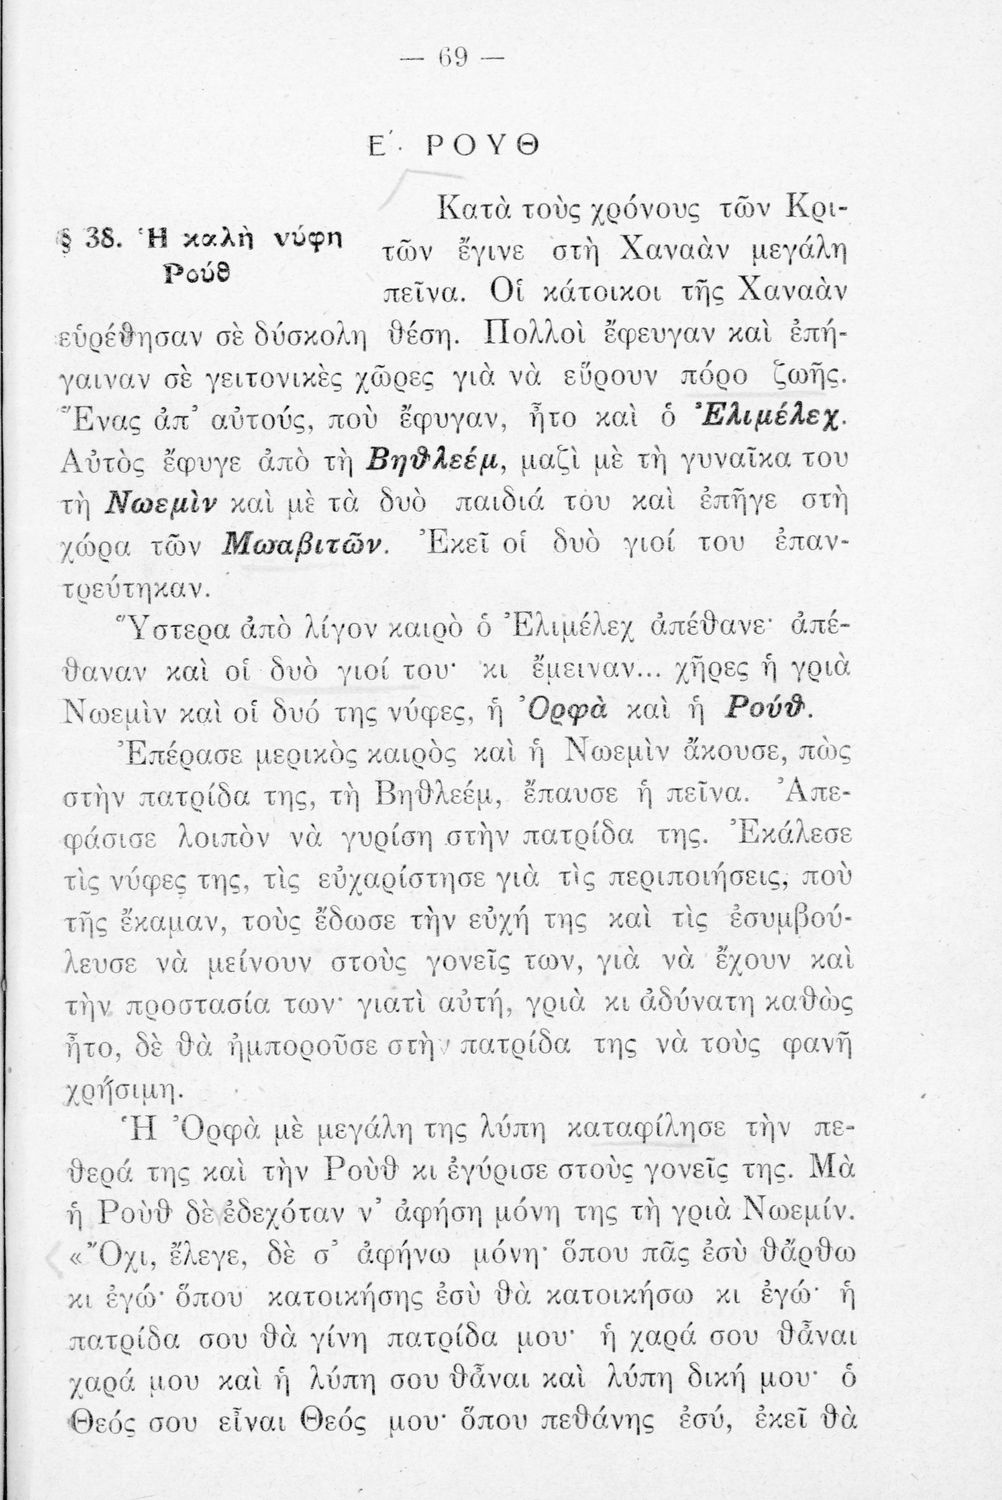 — 69 —
Ε΄. ΡΟΥΘ
§ 38. Ἡ καλὴ νύφη
Ρούθ
Κατὰ τοὺς χρόνους τῶν Κρι-
τῶν ἔγινε στὴ Χαναὰν μεγάλη
πεῖνα. Οἱ κάτοικοι τῆς Χαναὰν
εὑρέθησαν σὲ δύσκολη θέση. Πολλοὶ ἔφευγαν καὶ ἐπή-
γαιναν σὲ γειτονικὲς χῶρες γιὰ νὰ εὕρουν πόρο ζωῆς.
Ἕνας ἀπ᾿ αὐτούς, ποὺ ἔφυγαν, ἦτο καὶ ὁ Ἐλιμέλεχ.
Αὐτὸς ἔφυγε ἀπὸ τὴ Βηθλεέμ, μαζὶ μὲ τὴ γυναῖκα του
τὴ Νωεμὶν καὶ μὲ τὰ δυὸ παιδιά του καὶ ἐπῆγε στὴ
χώρα τῶν Μωαβιτῶν. Ἐκεῖ οἱ δυὸ γιοί του ἐπαν-
τρεύτηκαν.
Ὕστερα ἀπὸ λίγον καιρὸ ὁ Ἐλιμέλεχ ἀπέθανε· ἀπέ-
θαναν καὶ οἱ δυὸ γιοί του· κι ἔμειναν... χῆρες ἡ γριὰ
Νωεμὶν καὶ οἱ δυό της νύφες, ἡ Ὀρφὰ καὶ ἡ Ρούθ.
Ἐπέρασε μερικὸς καιρὸς καὶ ἡ Νωεμὶν ἄκουσε, πὼς
στὴν πατρίδα της, τὴ Βηθλεέμ, ἔπαυσε ἡ πεῖνα. Ἀπε-
φάσισε λοιπὸν νὰ γυρίση στὴν πατρίδα της. Ἐκάλεσε
τὶς νύφες της, τὶς εὐχαρίστησε γιὰ τὶς περιποιήσεις, ποὺ
τῆς ἔκαμαν, τοὺς ἔδωσε τὴν εὐχή της καὶ τὶς ἐσυμβού-
λευσε νὰ μείνουν στοὺς γονεῖς των, γιὰ νὰ ἔχουν καὶ
τὴν προστασία των· γιατὶ αὐτή, γριὰ κι ἀδύνατη καθὼς
ἦτο, δὲ θὰ ἠμποροῦσε στὴν πατρίδα της νὰ τοὺς φανῆ
χρήσιμη.
Ἡ Ὀρφὰ μὲ μεγάλη της λύπη καταφίλησε τὴν πε-
θερά της καὶ τὴν Ροὺθ κι ἐγύρισε στοὺς γονεῖς της. Μὰ
ἡ Ροὺθ δὲ ἐδεχόταν ν᾿ ἀφήση μόνη της τὴ γριὰ Νωεμίν.
«Ὄχι, ἔλεγε, δὲ σ᾿ ἀφήνω μόνη· ὅπου πᾶς ἐσὺ θἄρθω
κι ἐγώ· ὅπου κατοικήσης ἐσὺ θὰ κατοικήσω κι ἐγώ· ἡ
πατρίδα σου θὰ γίνη πατρίδα μου· ἡ χαρά σου θἆναι
χαρά μου καὶ ἡ λύπη σου θἆναι καὶ λύπη δική μου· ὁ
Θεός σου εἶναι Θεός μου· ὅπου πεθάνης ἐσύ, ἐκεῖ θὰ